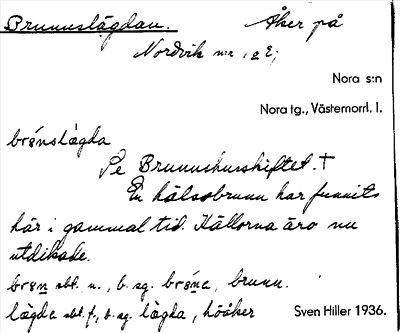 Brunnslägdan. Åker på
Nordvik nr 1 o 2;
Nora s:n
Nora tg., Västernorrl. l.
brǿnslàgda
Se Brunnshusskiftet. †
En hälsobrunn har funnits
här i gammal tid. Källorna äro nu
utdikade.
brøn sbt. n., b. sg. brǿna, brunn.
làgda sbt. f., b. sg. làgda, hööker
Sven Hiller 1936.